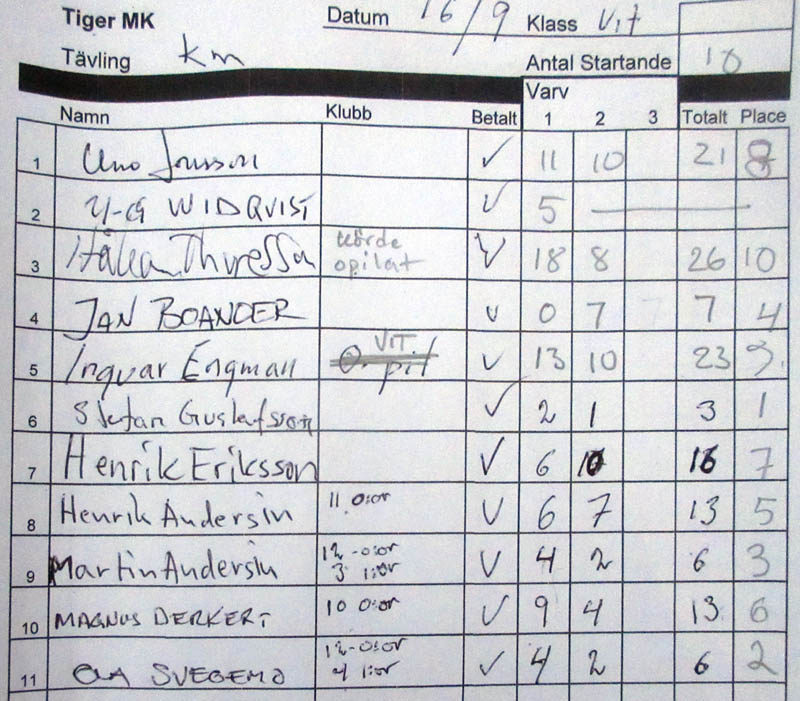 Tiger MK Datum 16/9 Klass Vit
Tävling km Antal Startande 10
Varv
Namn Klubb Betalt 1 2 3 Totalt Place
1 Uno Jonsson ✓ 11 10 21 8
2 WIDQVIST ✓ 5 —
3 Håkan Thyresson körde opilat ✓ 18 8 26 10
4 JAN BOANDER ✓ 0 7 7 4
5 Ingvar Engman VIT ✓ 13 10 23 9
6 Stefan Gustafsson ✓ 2 1 3 1
7 Henrik Eriksson ✓ 6 10 16 7
8 Henrik Andersin 11 0:or ✓ 6 7 13 5
9 Martin Andersin 12 0:or 3 1:or ✓ 4 2 6 3
10 MAGNUS DERKERT 10 0:or ✓ 9 4 13 6
11 OLA SVEGEMO 12 0:or 4 1:or ✓ 4 2 6 2